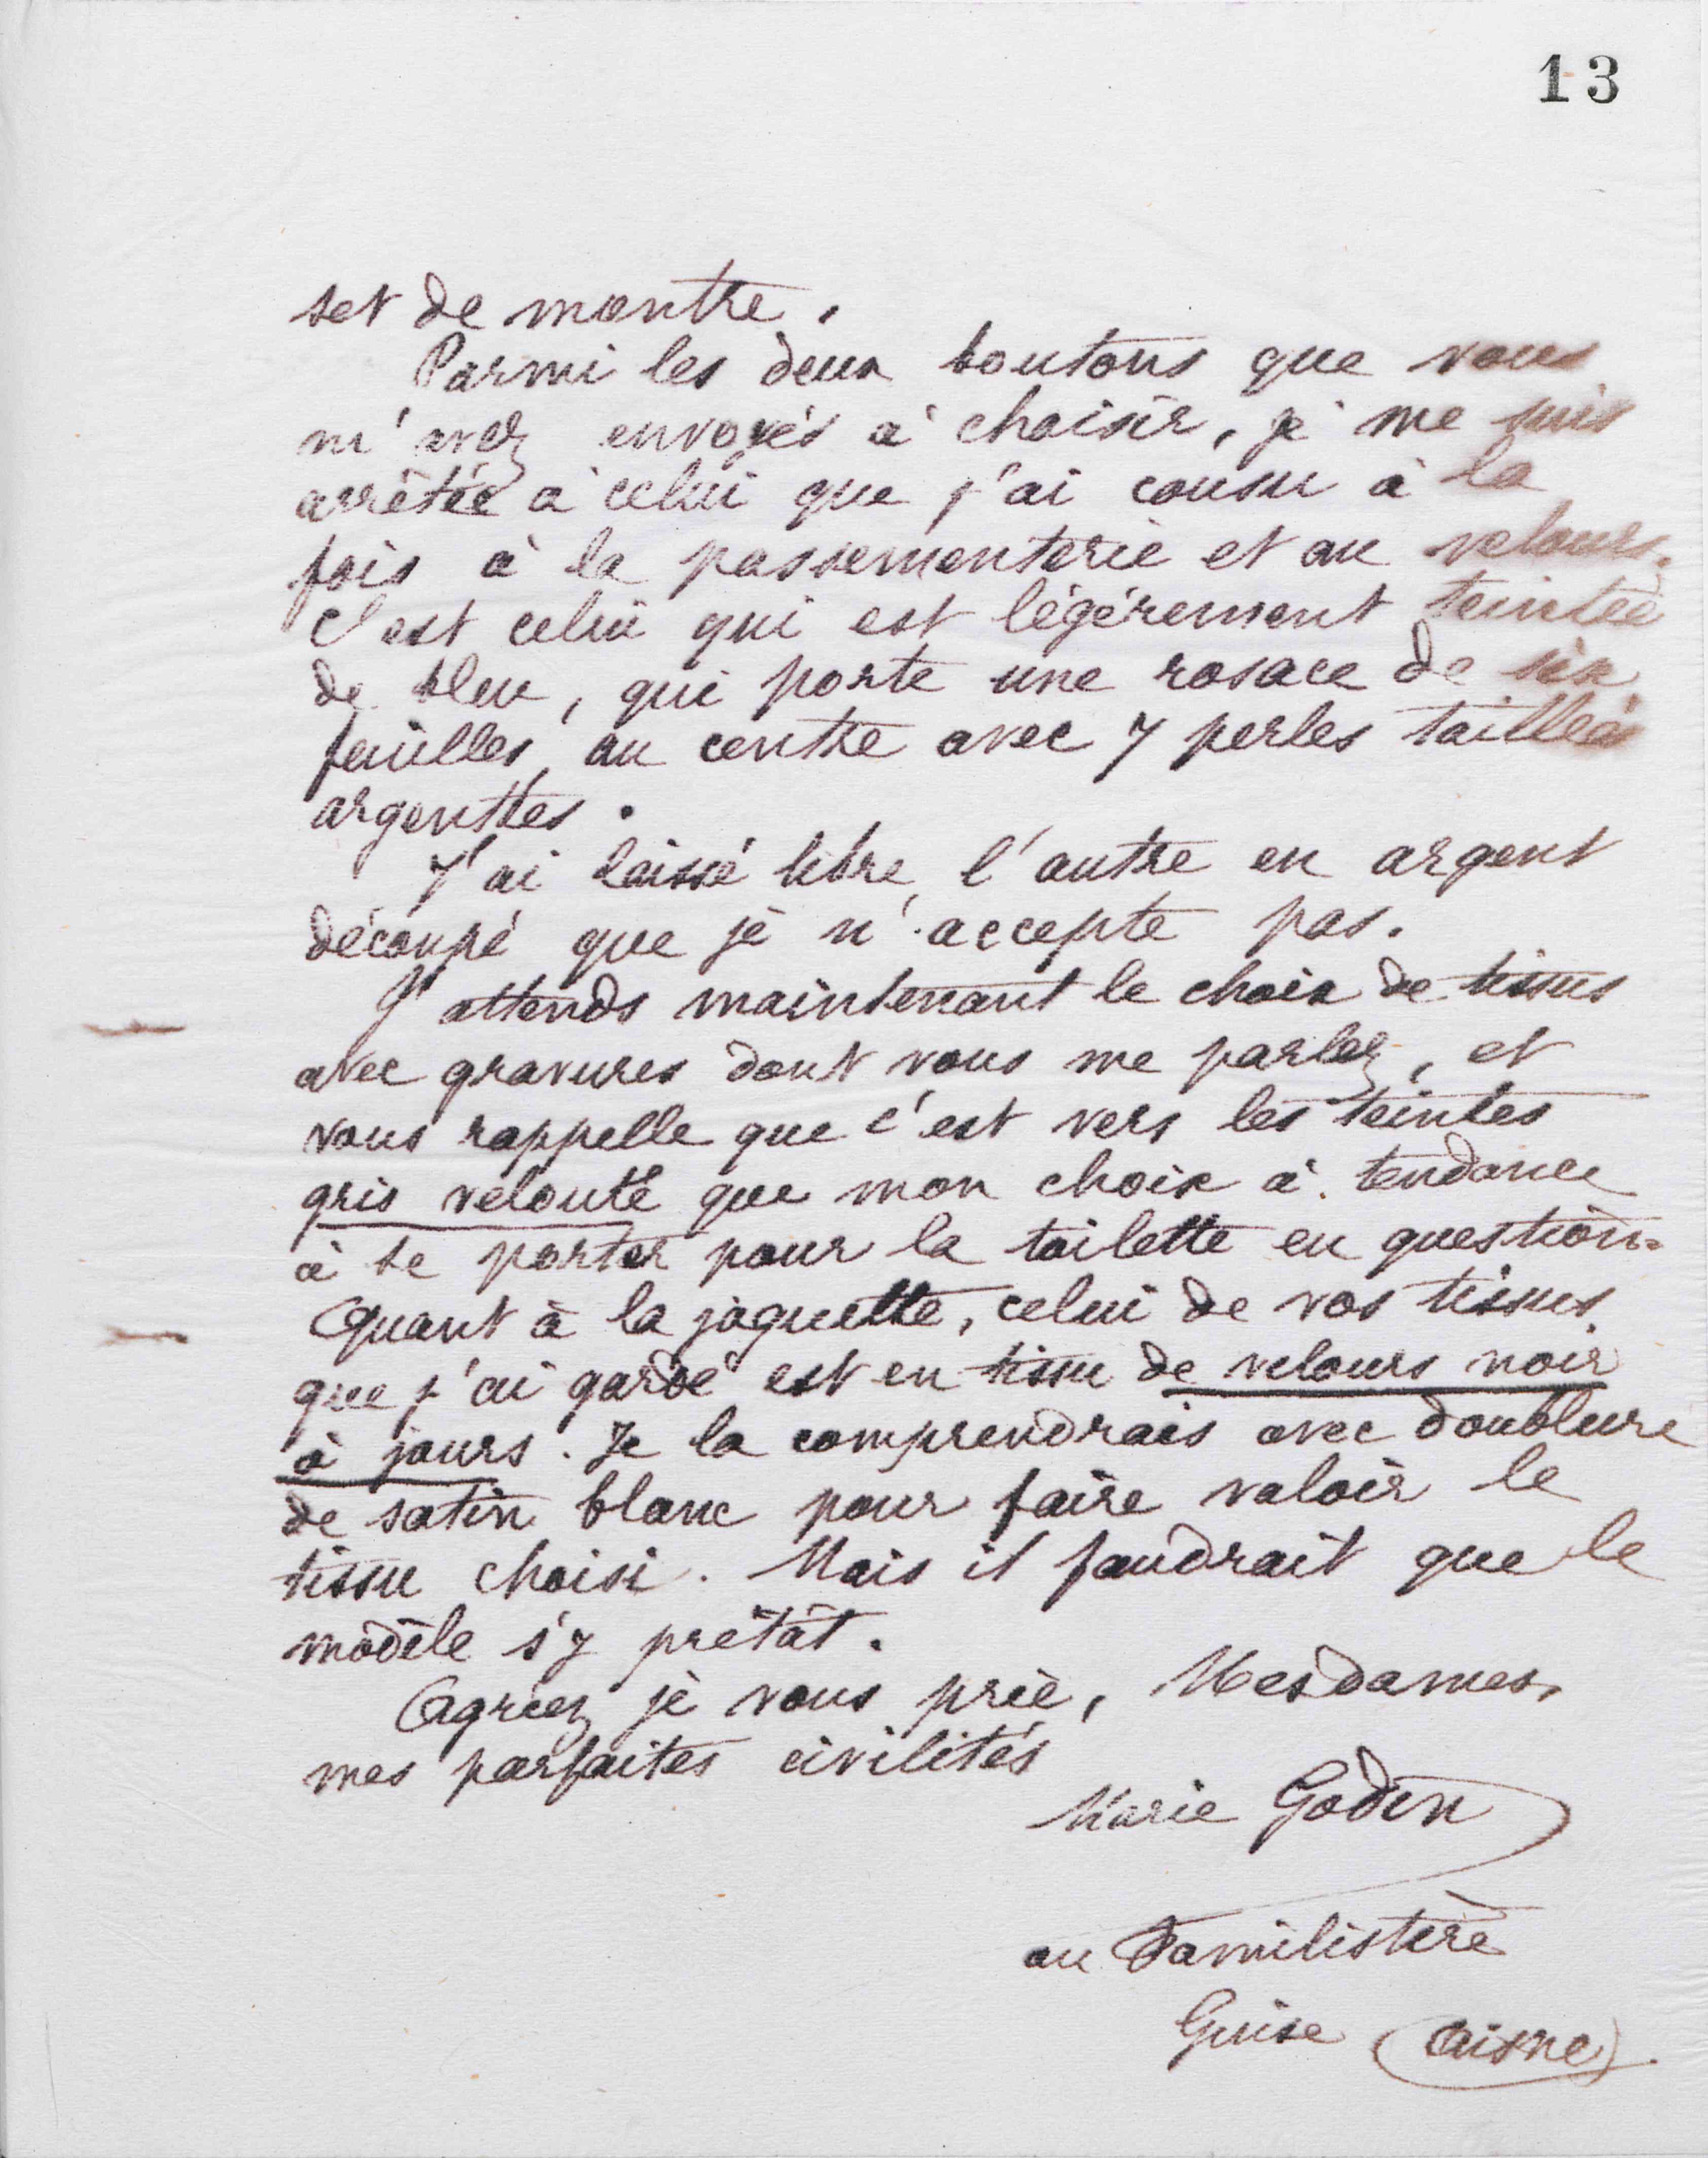 13
set de montre.
Parmi les deux boutons que vous
m'avez envoyés à choisir, je me suis
arrêtée à celui que j'ai cousu à la
fois à la passementerie et au velours.
C'est celui qui est légèrement teinté
de bleu, qui porte une rosace de six
feuilles au centre avec 7 perles taillées
argentées.
J'ai laissé libre l'autre en argent
découpé que je n'accepte pas.
J'attends maintenant le choix de tissus
avec gravures dont vous me parlez, et
vous rappelle que c'est vers les teintes
gris velouté que mon choix à tendance
à se porter pour la toilette en question.
Quant à la jaquette, celui de vos tissus
que j'ai gardé est en tissu de velours noir
à jours. Je la comprendrais avec doublure
de satin blanc pour faire valoir le
tissu choisi. Mais il faudrait que le
modèle s'y prêtât.
Agréez je vous prie, Mesdames,
mes parfaites civilités
Marie Godin
au Familistère
Guise (Aisne).